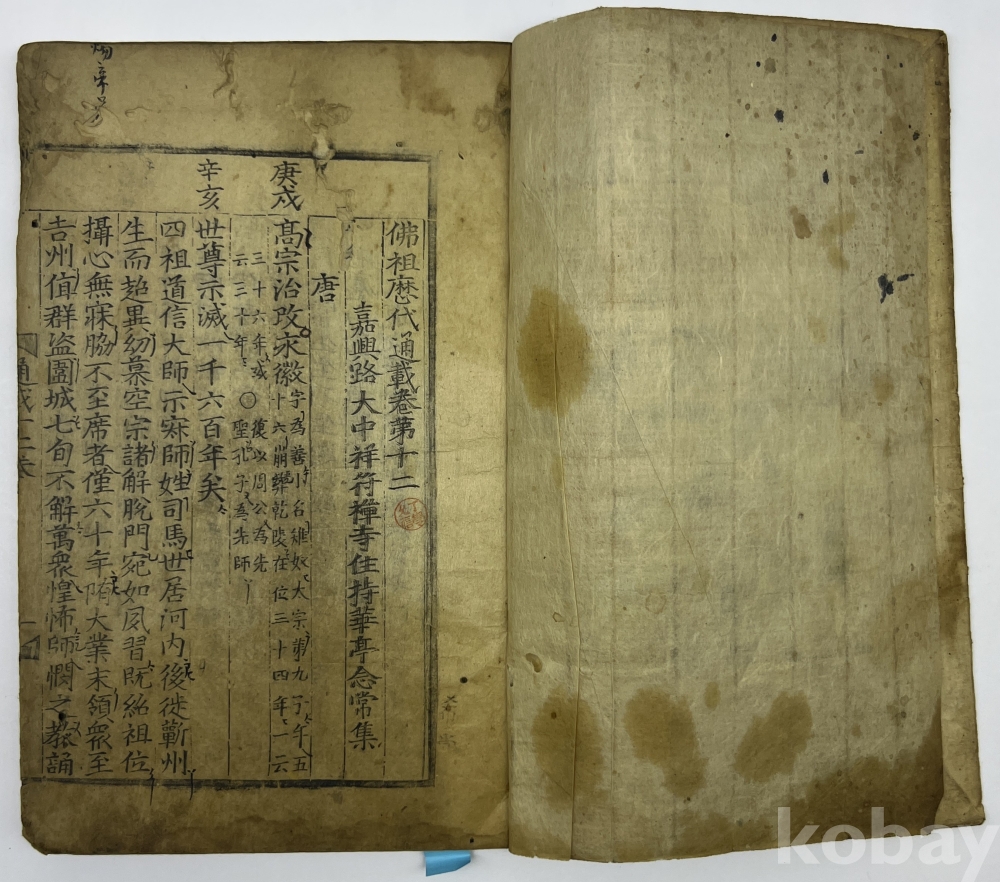 佛祖歷代通載卷第十二
嘉興路大中祥符禪寺住持華亭念常集
唐
庚戌
高宗治改永徽
字為善小名雉奴太宗第九子午五
十六崩葬乾陵在位三十四年一云
三十六年或復以周公為先
云三十年〇聖孔子為先師
辛亥
世尊示滅一千六百年矣
四祖道信大師示寂師姓司馬世居河內後徙蘄州
生而超異幼慕空宗諸解脫門宛如夙習既紹祖位
攝心無寐脇不至席者僅六十年隋大業末領衆至
吉州值群盜圍城七旬不解萬衆惶怖師憫之教誦
kobay